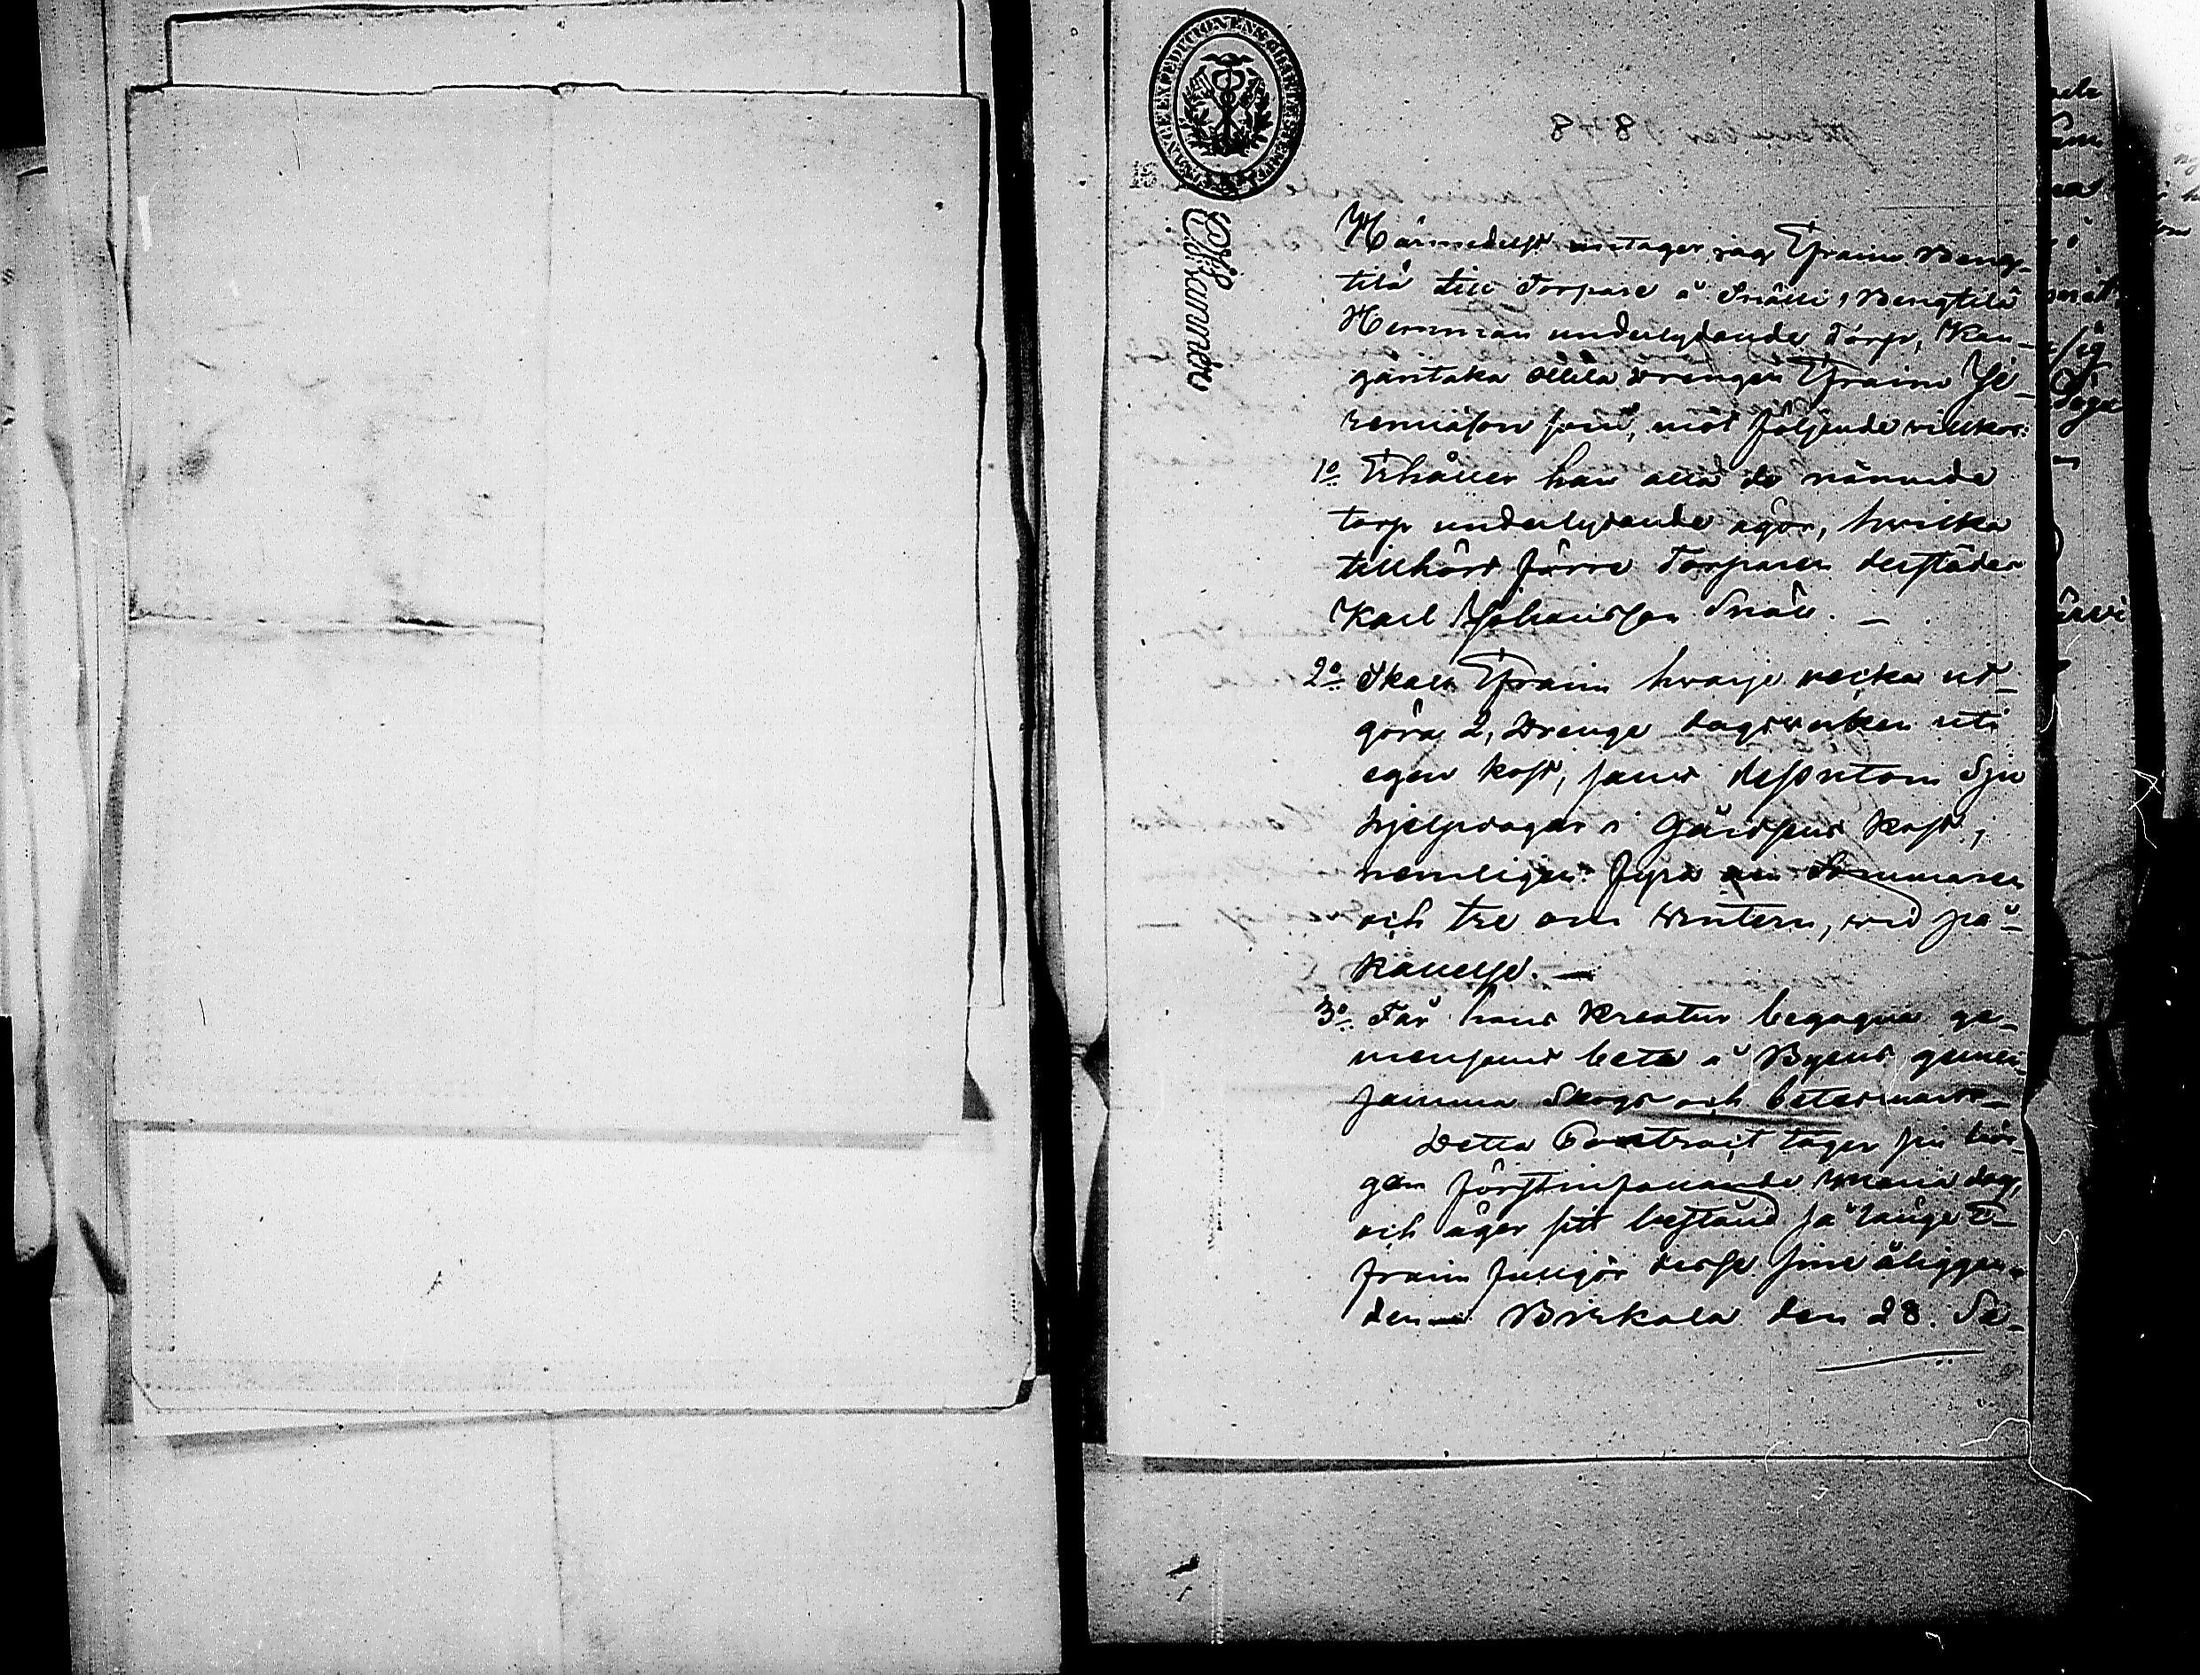 Härmedelst antager jag Efraim Beng-
tilä till Torpare å Snälli, Bengtilä
Hemman underlydande Torp, Kan-
gantaka Ollila drengen Efraim Je-
remiasson son, mot följande villkor:
1o Erhåller han alla de nämnde
torp underlydande ägor, hwilka
tillhört förre Torparen derstädes
Karl Johansson Snäll. —
2o Skall Efraim hwarje wecka ut-
göra 2, Drenge dagswerken uti
egen kost, samt dessutom Sju
hjelpedagar i Gårdsens kost,
nemligen: fyra om Sommaren
och tre om Wintern, wid på-
kallelse. —
3o Får hans Kreatur begagna ge-
mensamt bete å Byens gemen-
samma Skogs och betesmark —
Detta Contract tager sin bör-
jan förstinfallande Maria dag,
och äger sitt bestånd så länge E-
fraim fullgör desse sine åliggan-
den — Birkala den 28. Se-